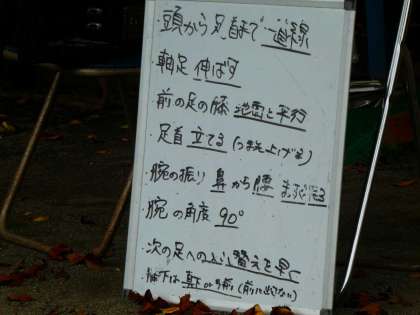 ・頭から足首まで一直線
・軸足 伸ばす
・前の足の膝 地面と平行
・足首 立てる (つま先上げる)
・腕の振り 鼻から腰 まで振る
・腕の角度 90°
・次の足への 替えを早く
・ 下は真下or 前 (前に出さない)